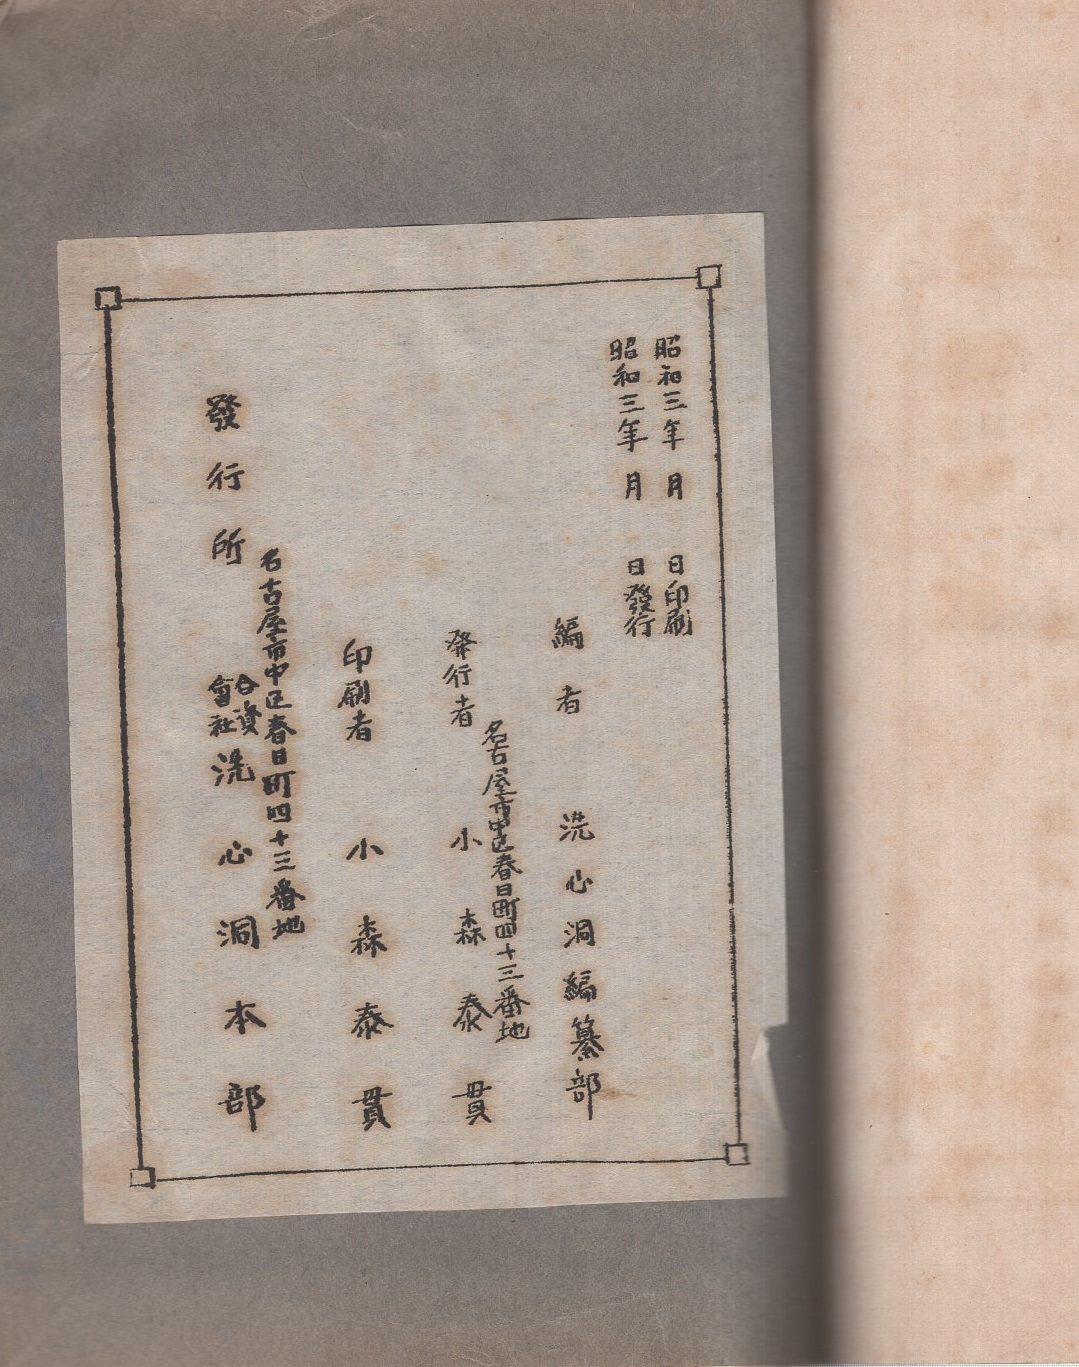 昭和三年 月 日印刷
昭和三年 月 日發行
編者 洗心洞編纂部
名古屋市中区春日町四十三番地
発行者 小森泰貫
印刷者 小森泰貫
名古屋市中区春日町四十三番地
發行所 合資會社 洗心洞本部